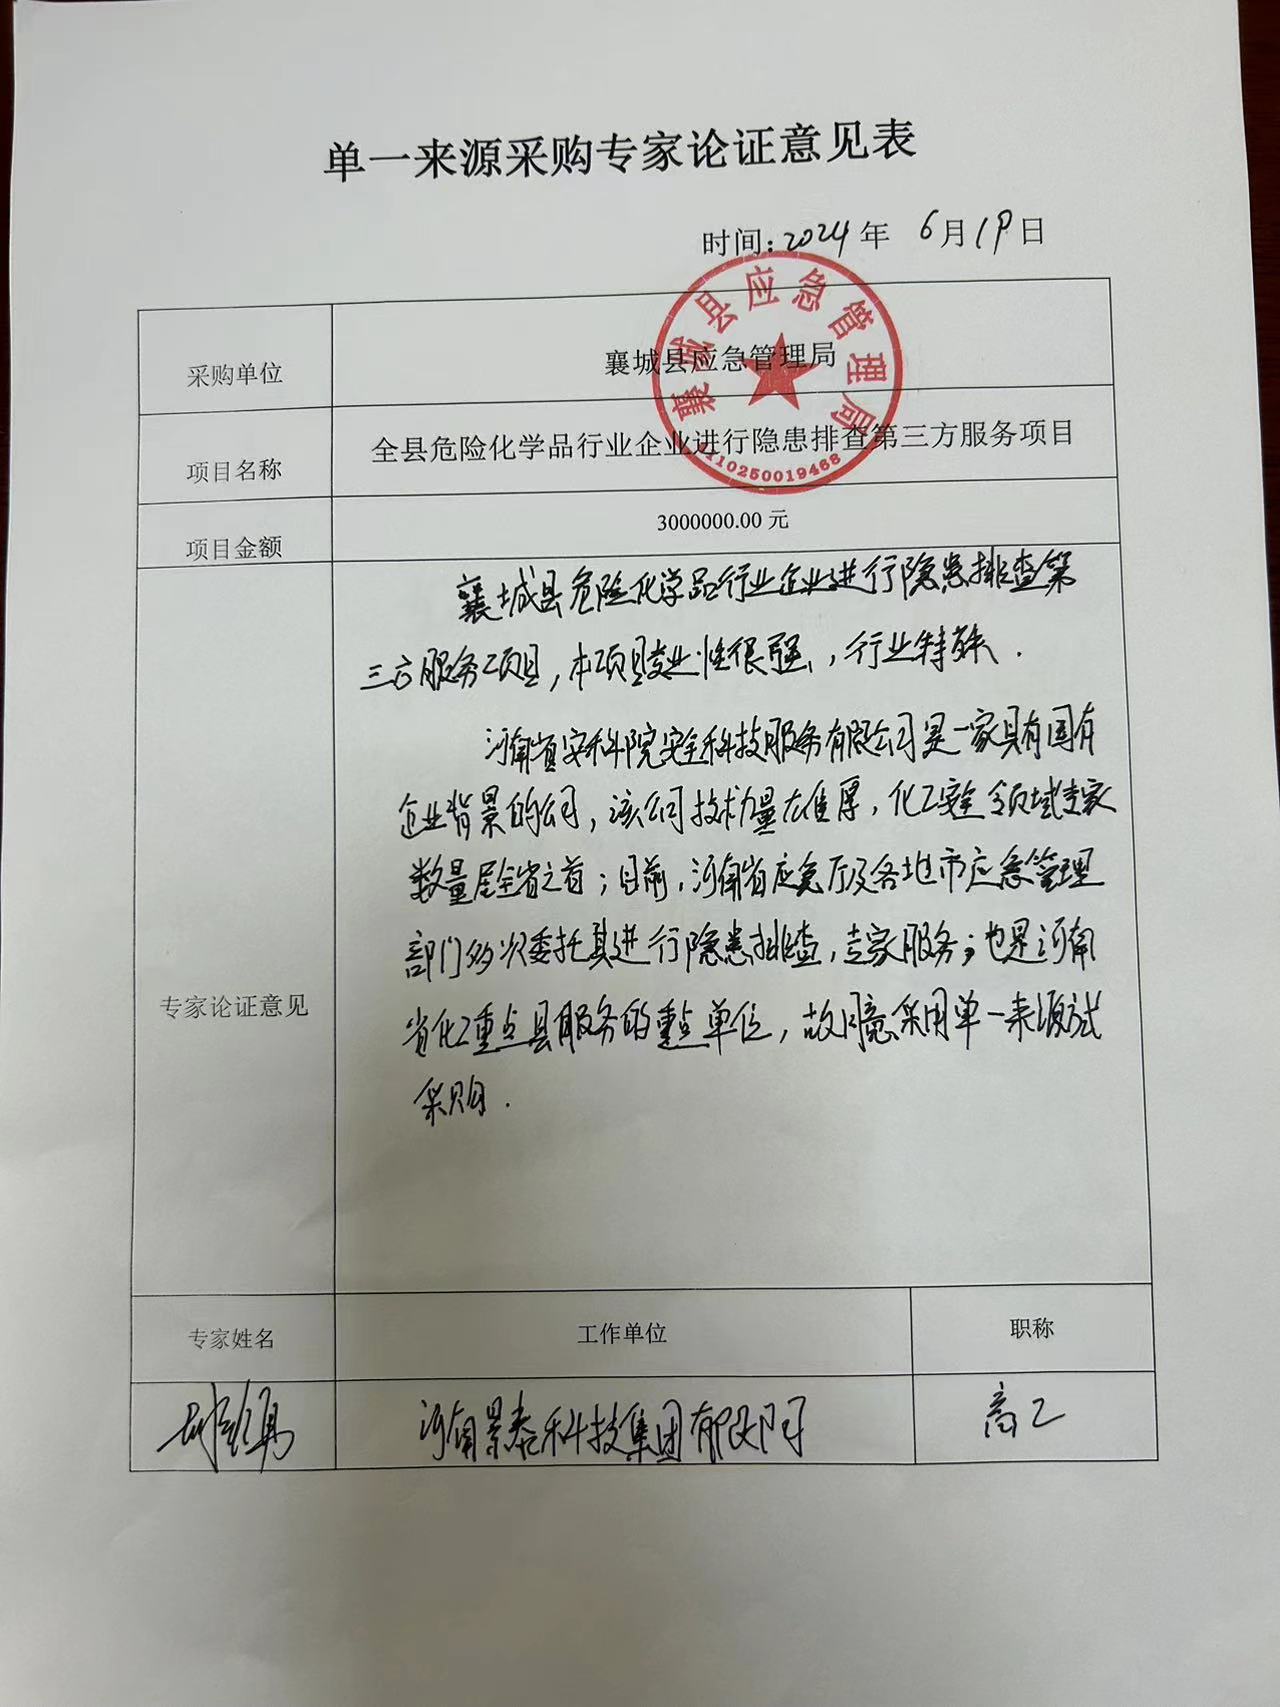 单一来源采购专家论证意见表
时间:2024年 6月19日
襄城县应急管理局
采购单位
襄城县应急管理局
全县危险化学品行业企业进行隐患排查第三方服务项目
项目名称
4110250019468
3000000.00 元
项目金额
襄城县危险化学品行业企业进行隐患排查第
三方服务项目,本项目专业性很强,行业特殊.
河南省安科院安全科技服务有限公司是一家具有国有
企业背景的公司,该公司技术力量雄厚,化工安全领域专家
数量居全省之首;目前,河南省应急厅及各地市应急管理
部门多次委托其进行隐患排查,专家服务;也是河南
省化工重点县服务的重点单位,故同意采用单一来源方式
采购.
专家论证意见
专家姓名
工作单位
职称
河南景泰科技集团有限公司
高工